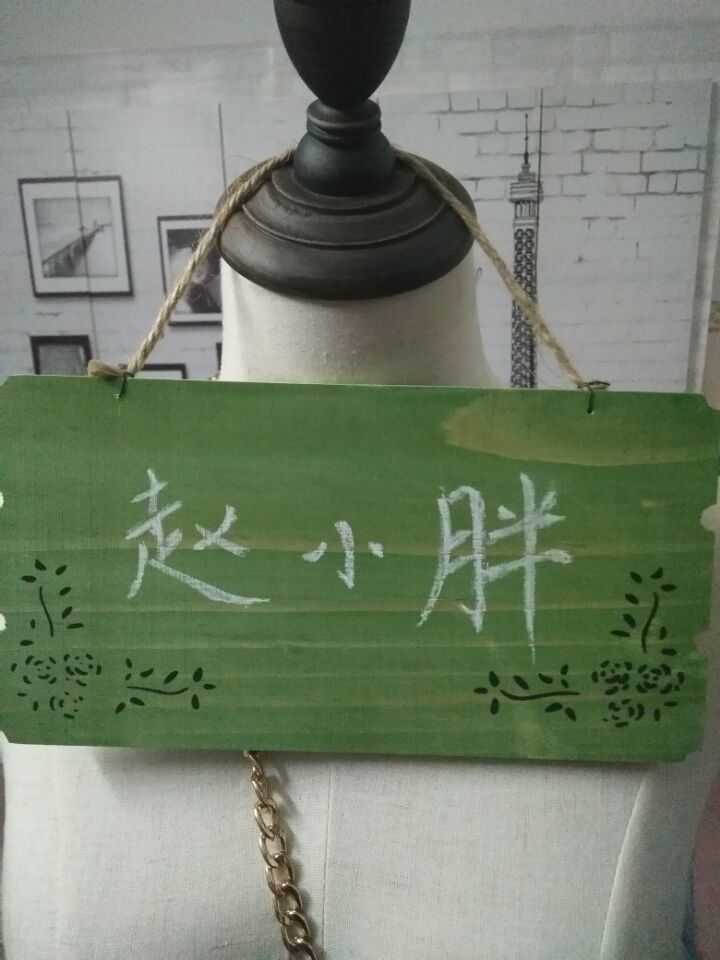 赵小胖